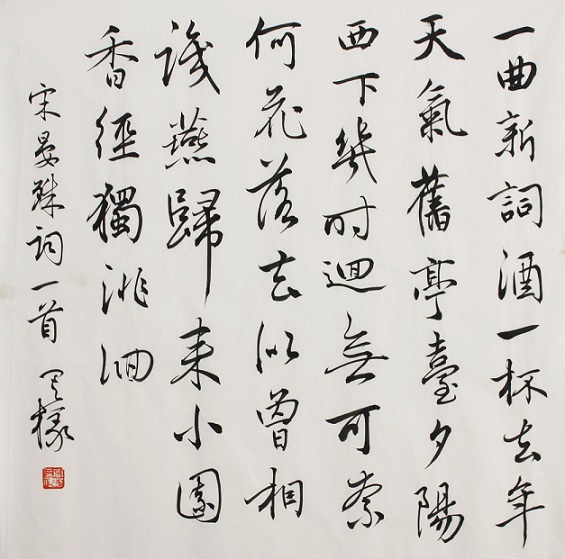 一曲新詞酒一杯去年
天氣舊亭臺夕陽
西下幾时迴無可奈
何花落去似曾相
識燕歸来小園
香徑獨徘徊
宋晏殊词一首